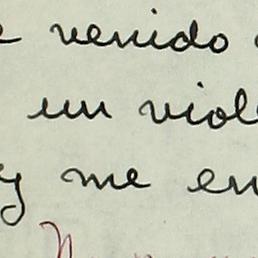 e venido
un viol
y me en